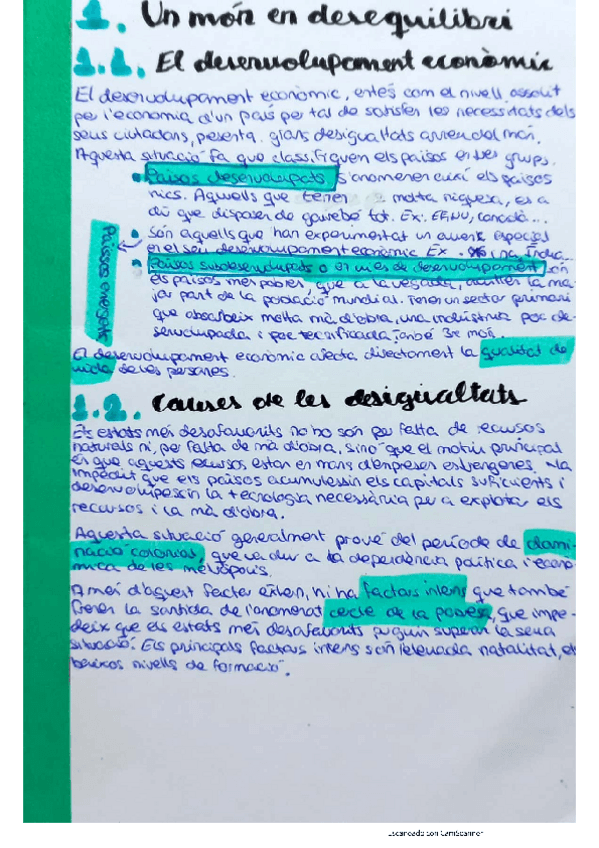 1. Un món en desequilibri
1.1. El desenvolupament econòmic
El desenvolupament econòmic, entès com el nivell assolit
per l'economia d'un país per tal de satisfer les necessitats dels
seus ciutadans, presenta grans desigualtats arreu del món.
Aquesta situació fa que classifiquen els països en tres grups.
Països desenvolupats, s'anomenen així els països
rics. Aquells que tenen molta riquesa, és a
dir que disposen de gairebé tot. Ex: EEUU, canadà...
Països emergents
Són aquells que han experimentat un augment especial
en el seu desenvolupament econòmic Ex. Xina, Índia...
Països subdesenvolupats o en vies de desenvolupament són
els països més pobres, que a la vegada, acullen la ma-
jor part de la població mundial. Tenen un sector primari
que absorbeix molta mà d'obra, una indústria poc de-
senvolupada i poc tecnificada també 3r món.
El desenvolupament econòmic afecta directament la qualitat de
vida de les persones.
1.2. Causes de les desigualtats
Els estats més desafavorits no ho són per falta de recursos
naturals ni per falta de mà d'obra, sino que el motiu principal
és que aquests recursos estan en mans d'empreses estrangeres. Ha
impedit que els països acumulessin els capitals suficients i
desenvolupessin la tecnologia necessària per a explotar els
recursos i la mà d'obra.
Aquesta situació generalment prové del període de domi-
nació colonial, que va dur a la dependència política i econò-
mica de les metròpolis.
A més d'aquest factor extern, hi ha factors interns que també
tenen la sortida de l'anomenat cercle de la pobresa, que impe-
deix que els estats més desafavorits puguin superar la seva
situació. Els principals factors interns són l'elevada natalitat, el
baixos nivells de formació.
Escaneado con CamScanner